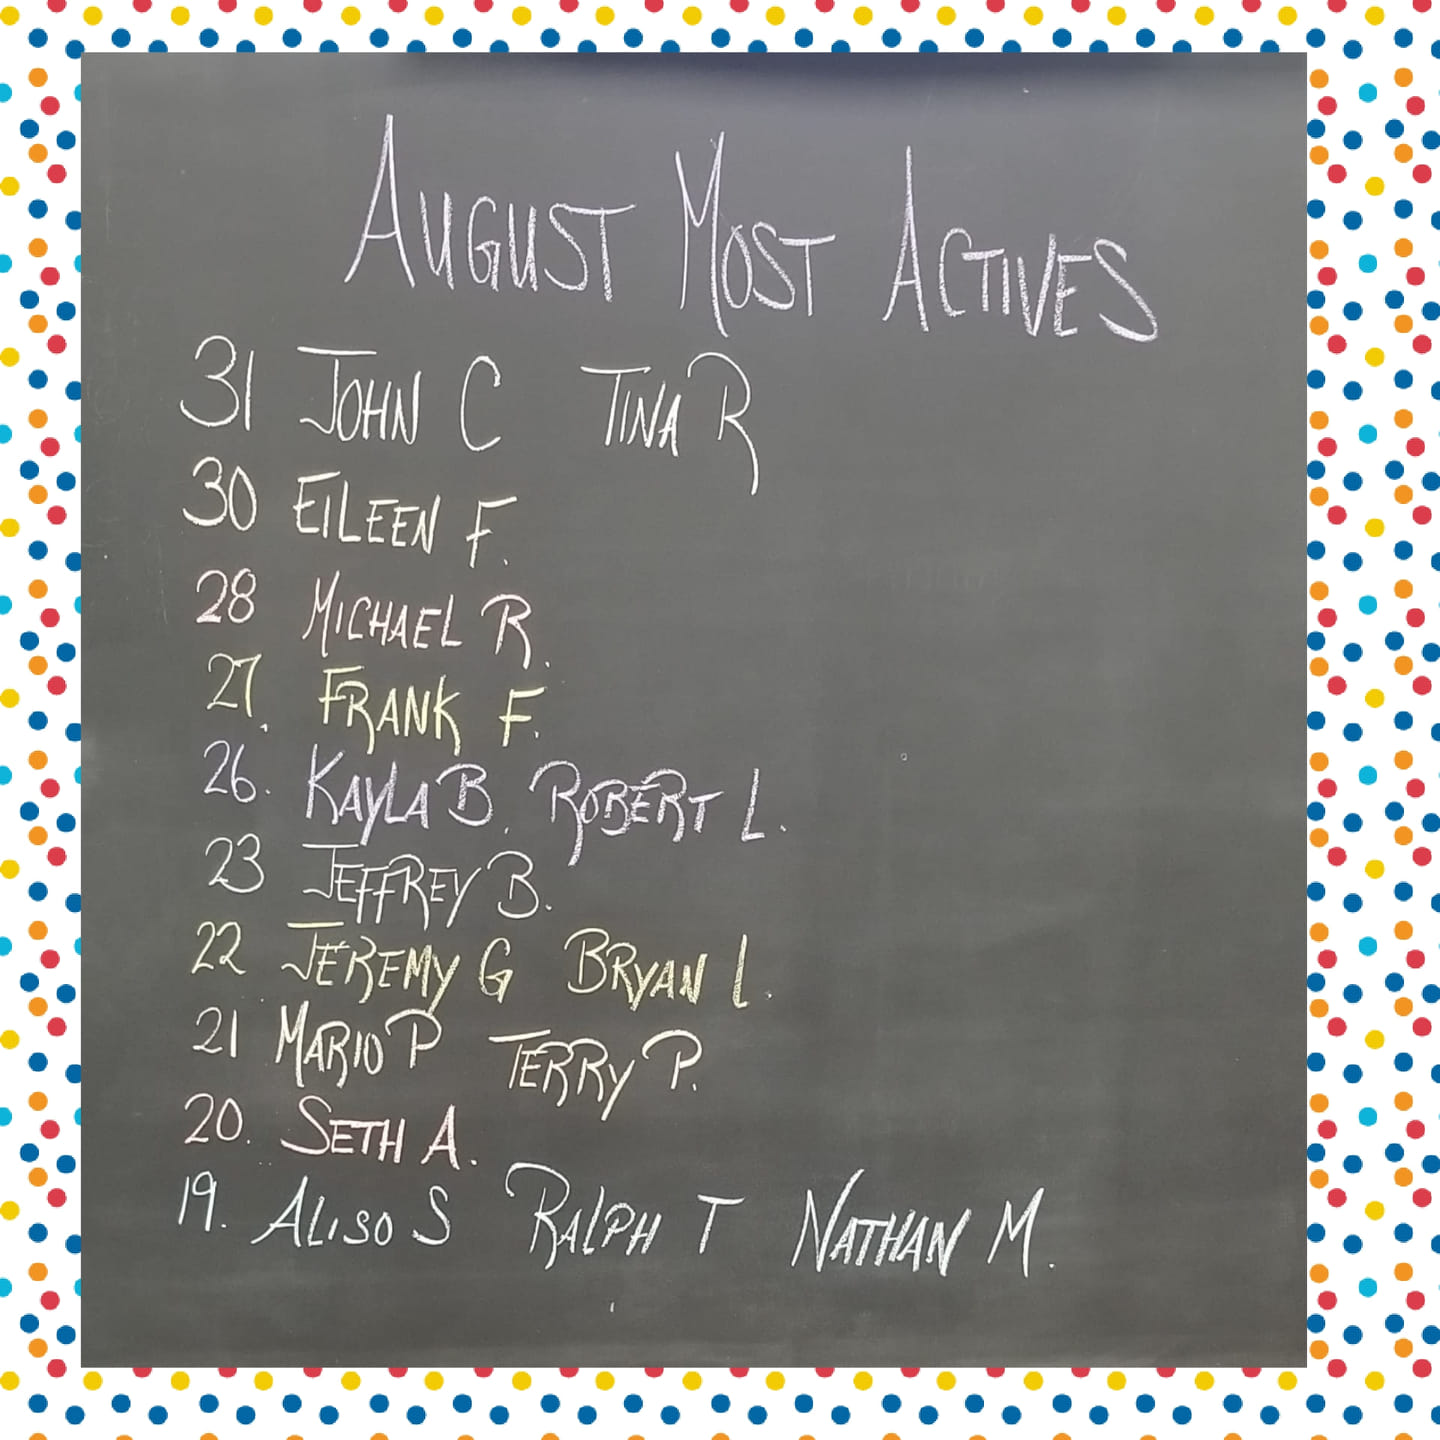 AUGUST MOST ACTIVES
31 JOHN C TINA R
30 EILEEN F.
28 MICHAEL R.
27. FRANK F.
26. KAYLA B. ROBERT L.
23 JEFFREY B.
22 JEREMY G BRYAN L.
21 MARIO P TERRY P.
20. SETH A.
19. ALISO S RALPH T NATHAN M.